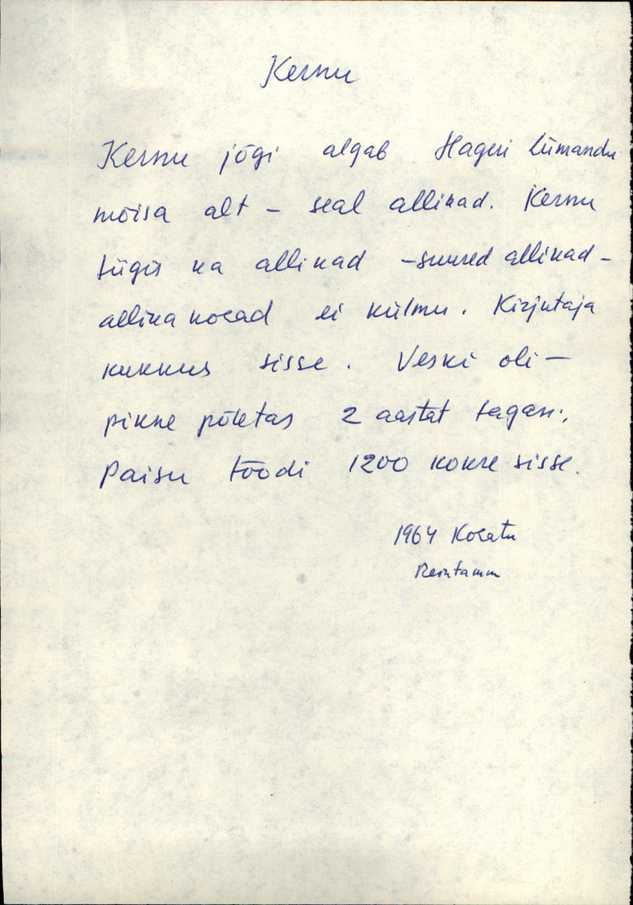 Kernu
Kernu jõgi algab Hageri Liimandu
mõisa alt – seal allikad. Kernu
tiigis ka allikad – suured allikad –
allika kocad ei külmu. Kirjutaja
kukkus sisse. Veski oli –
pikne põletas 2 aastat tagasi.
Paisu töödi 1200 kokre sisse.
1964 Kocatu